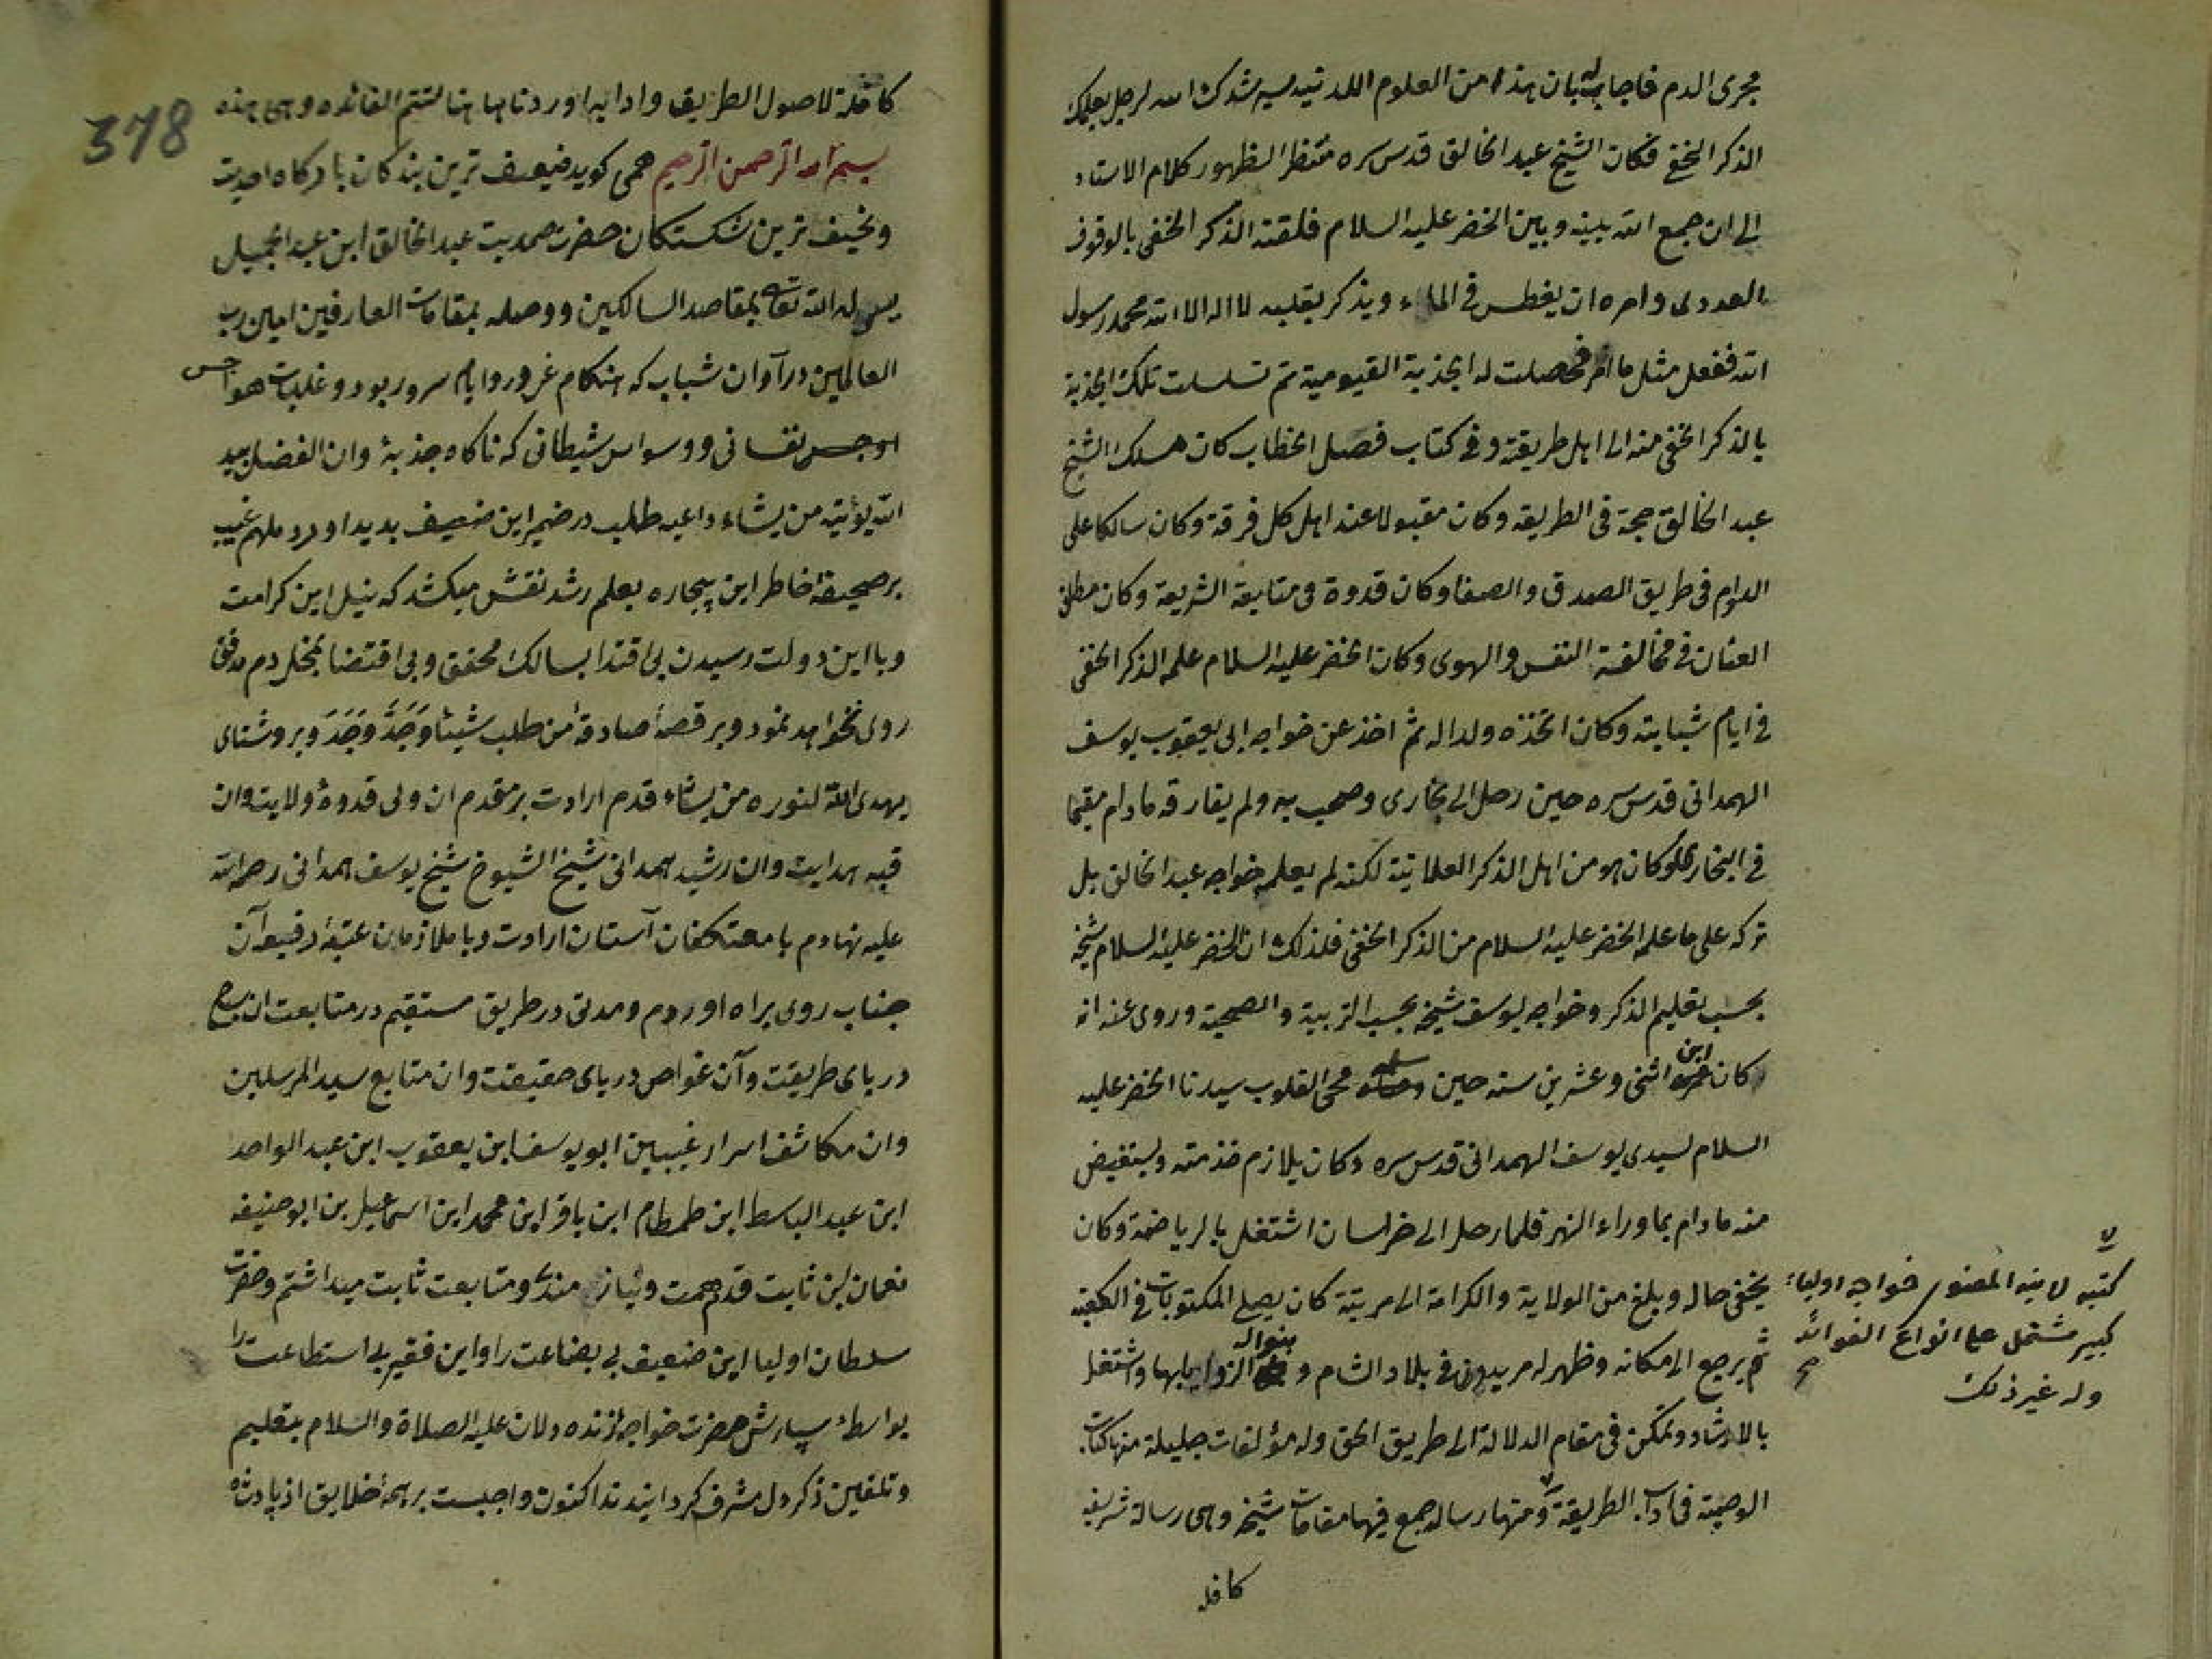 مجرى الدم فاجابه بان هذا من العلوم اللدنية سيرشدك الله لرجل يعلمك
الذكر الخفي فكان الشيخ عبد الخالق قدس سره منتظرا لظهور كلام الاستاد
الى ان جمع الله بينه وبين الخضر عليه السلام فلقنه الذكر الخفى بالوقوف
العددى وامره ان يغطس فى الماء ويذكر بقلبه لا اله الا الله محمد رسول
الله ففعل مثل ما امر فحصلت له الجذبة القيومية ثم تسلسلت تلك الجذبة
بالذكر الخفى منه الى اهل طريقته وفى كتاب فصل الخطاب كان مسلك الشيخ
عبد الخالق حجة فى الطريقه وكان مقبولا عند اهل كل فرقة وكان سالكا على
الدوام فى طريق الصدق والصفا وكان قدوة فى متابعة الشريعة وكان مطلق
العنان فى مخالفة النفس والهوى وكان الخضر عليه السلام علمه الذكر الخفى
فى ايام شبابته وكان اتخذه ولدا له ثم اخذ عن خواجه ابى يعقوب يوسف
الهمدانى قدس سره حين رحل الى بخارى وصحب به ولم يفارقه مادام مقيما
فى البخارى وكان هو من اهل الذكر العلانية لكنه لم يعلمه خواجه عبد الخالق بل
تركه على ما علمه الخضر عليه السلام من الذكر الخفى فلذلك ان الخضر عليه السلام شيخه
بحسب تعليم الذكر وخواجه يوسف شيخه بحسب التربية والصحبة وروى عنه انه
كان ابن اثنى وعشرين سنه حين سلمه محى القلوب سيدنا الخضر عليه
السلام لسيدى يوسف الهمدانى قدس سره وكان يلازم خدمته ويستفيض
منه مادام بماوراء النهر فلما رحل الى خراسان اشتغل بالرياضة وكان
يخفى حاله وبلغ من الولاية والكرامة الى مرتبة كان يصلى المكتوبات فى الكعبة
ثم يرجع الى مكانه وظهر له مريدون فى بلاد الشام و بنوا له الزوايا بها واشتغل
بالارشاد وتمكن فى مقام الدلالة الى طريق الحق وله مؤلفات جليلة منها كتاب
الوصية فى اداب الطريقة ومنها رساله جمع فيها مقامات شيخه وهى رسالة شريفه
كافله
كتبه لابنه المعنوى خواجه اولياء
كبير مشتمل على انواع الفوائد
وله غير ذلك
378
كافلة لاصول الطريق وادابه اوردناها هنا لتتم الفائده وهى هذه
بسم الله الرحمن الرحيم همى كويد ضعيف ترين بندكان باركاه احديت
ونحيف ترين شكستكان حضرت صمديت عبد الخالق ابن عبد الجميل
يسر له الله تعالى بمقاصد السالكين ووصله بمقامات العارفين امين رب
العالمين در آوان شباب كه هنكام غرور وايام سرور بود و غلبات هواجس
نفسانى ووسواس شيطانى كه ناكاه جذبهٔ وان الفضل بيد
الله يؤتيه من يشاء داعيه طلب در ضمير اين ضعيف پديد اورد ملهم غيب
بر صحيفهٔ خاطر اين بيچاره بعلم رشد نقش ميكشد كه نيل اين كرامت
وبا اين دولت رسيدن بى اقتدا بسالك محقق وبى اقتضا
روى نخواهد نمود وبر قصهٔ صادقهٔ من طلب شيئا وَجَدَّ وَجَدَ وبروشناى
يهدى الله لنوره من يشاء قدم ارادت بر مقدم ان ولى قدوهٔ ولايت وان
قبه هدايت وان رشيد همدانى شيخ الشيوخ شيخ يوسف همدانى رحمة الله
عليه نهادم با معتكفان آستان ارادت وبا ملازمان عتبهٔ رفيع آن
جناب روى براه اوردم ومدتى در طريق مستقيم در متابعت ان
درياى طريقت وآن غواص درياى حقيقت وان متابع سيد المرسلين
وان مكاشف اسرار غيبيين ابو يوسف ابن يعقوب ابن عبد الواحد
ابن عبد الباسط ابن طمطام ابن باقر ابن محمد ابن اسماعيل بن ابو حنيفه
نعمان بن ثابت قدم همت ونياز مندى ومتابعت ثابت ميداشتم وحضرت
سلطان اوليا اين ضعيف بى بضاعت را واين فقير بى استطاعت را
بواسطهٔ سپارش حضرت خواجه زنده دلان عليه الصلاة والسلام بتعليم
وتلقين ذكر دل مشرف كردانيدند اكنون واجبست بر همهٔ خلايق از پادشاه